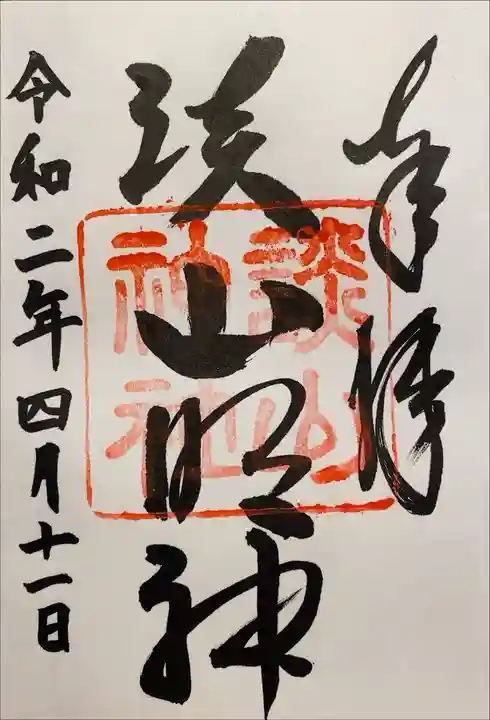 奉拝
談山明神
談山
神社
令和二年四月十一日